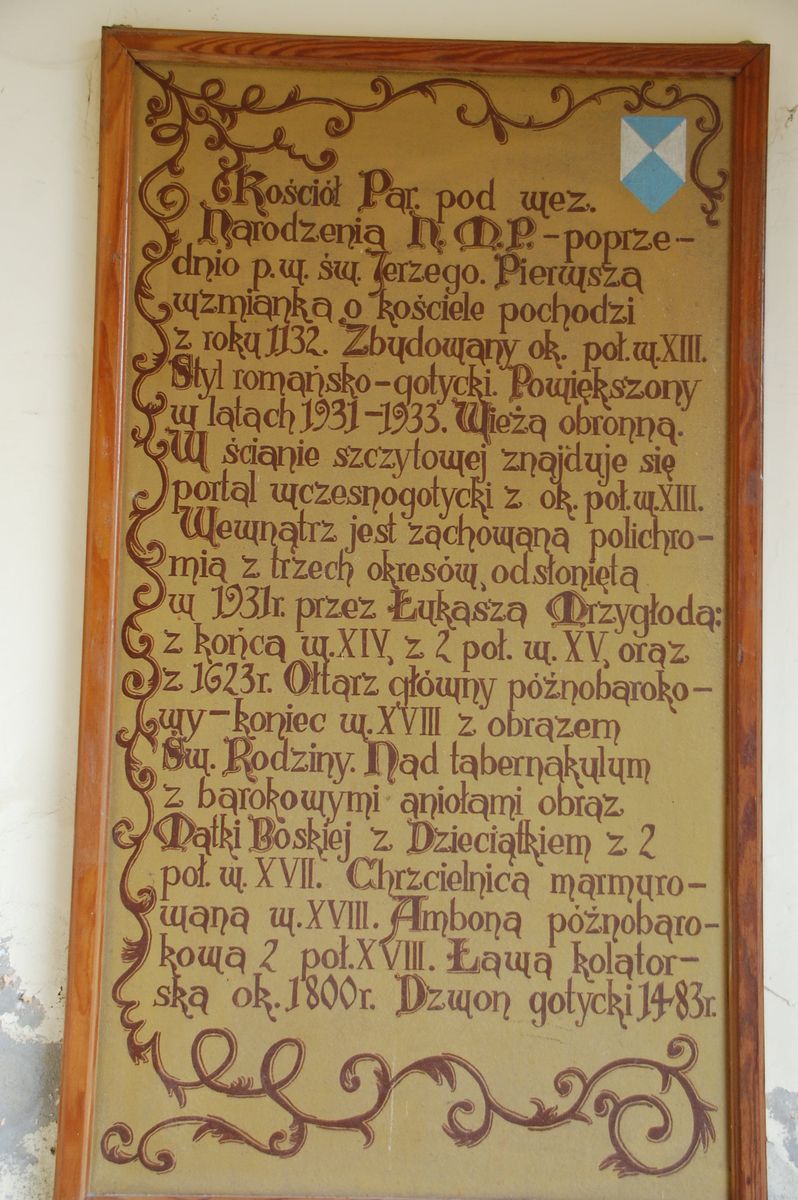 Kościół Par. pod wez.
Narodzenia N. M. P. - poprze-
dnio p.w. św. Jerzego. Pierwsza
wzmianka o kościele pochodzi
z roku 1132. Zbudowany ok. poł. w. XIII.
Styl romańsko-gotycki. Powiększony
w latach 1931-1933. Wieża obronna.
W ścianie szczytowej znajduje się
portal wczesnogotycki z ok. poł. w. XIII.
Wewnątrz jest zachowana polichro-
mia z trzech okresów, odsłonięta
w 1931r. przez Łukasza Mrzygłoda:
z końca w. XIV, z 2 poł. w. XV, oraz
z 1623r. Ołtarz główny późnobaroko-
wy - koniec w. XVIII z obrazem
Św. Rodziny. Nad tabernakulum
z barokowymi aniołami obraz
Matki Boskiej z Dzieciątkiem z 2
poł. w. XVII. Chrzcielnica marmuro-
wana w. XVIII. Ambona późnobaro-
kowa 2 poł. XVIII. Ława kolator-
ska ok. 1800r. Dzwon gotycki 1483r.